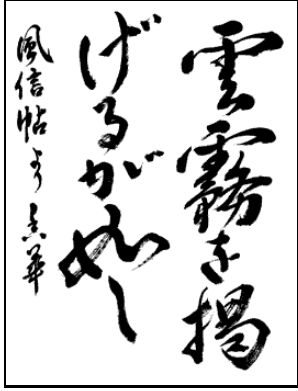 雲霧を掲
げるが如し
風信帖より